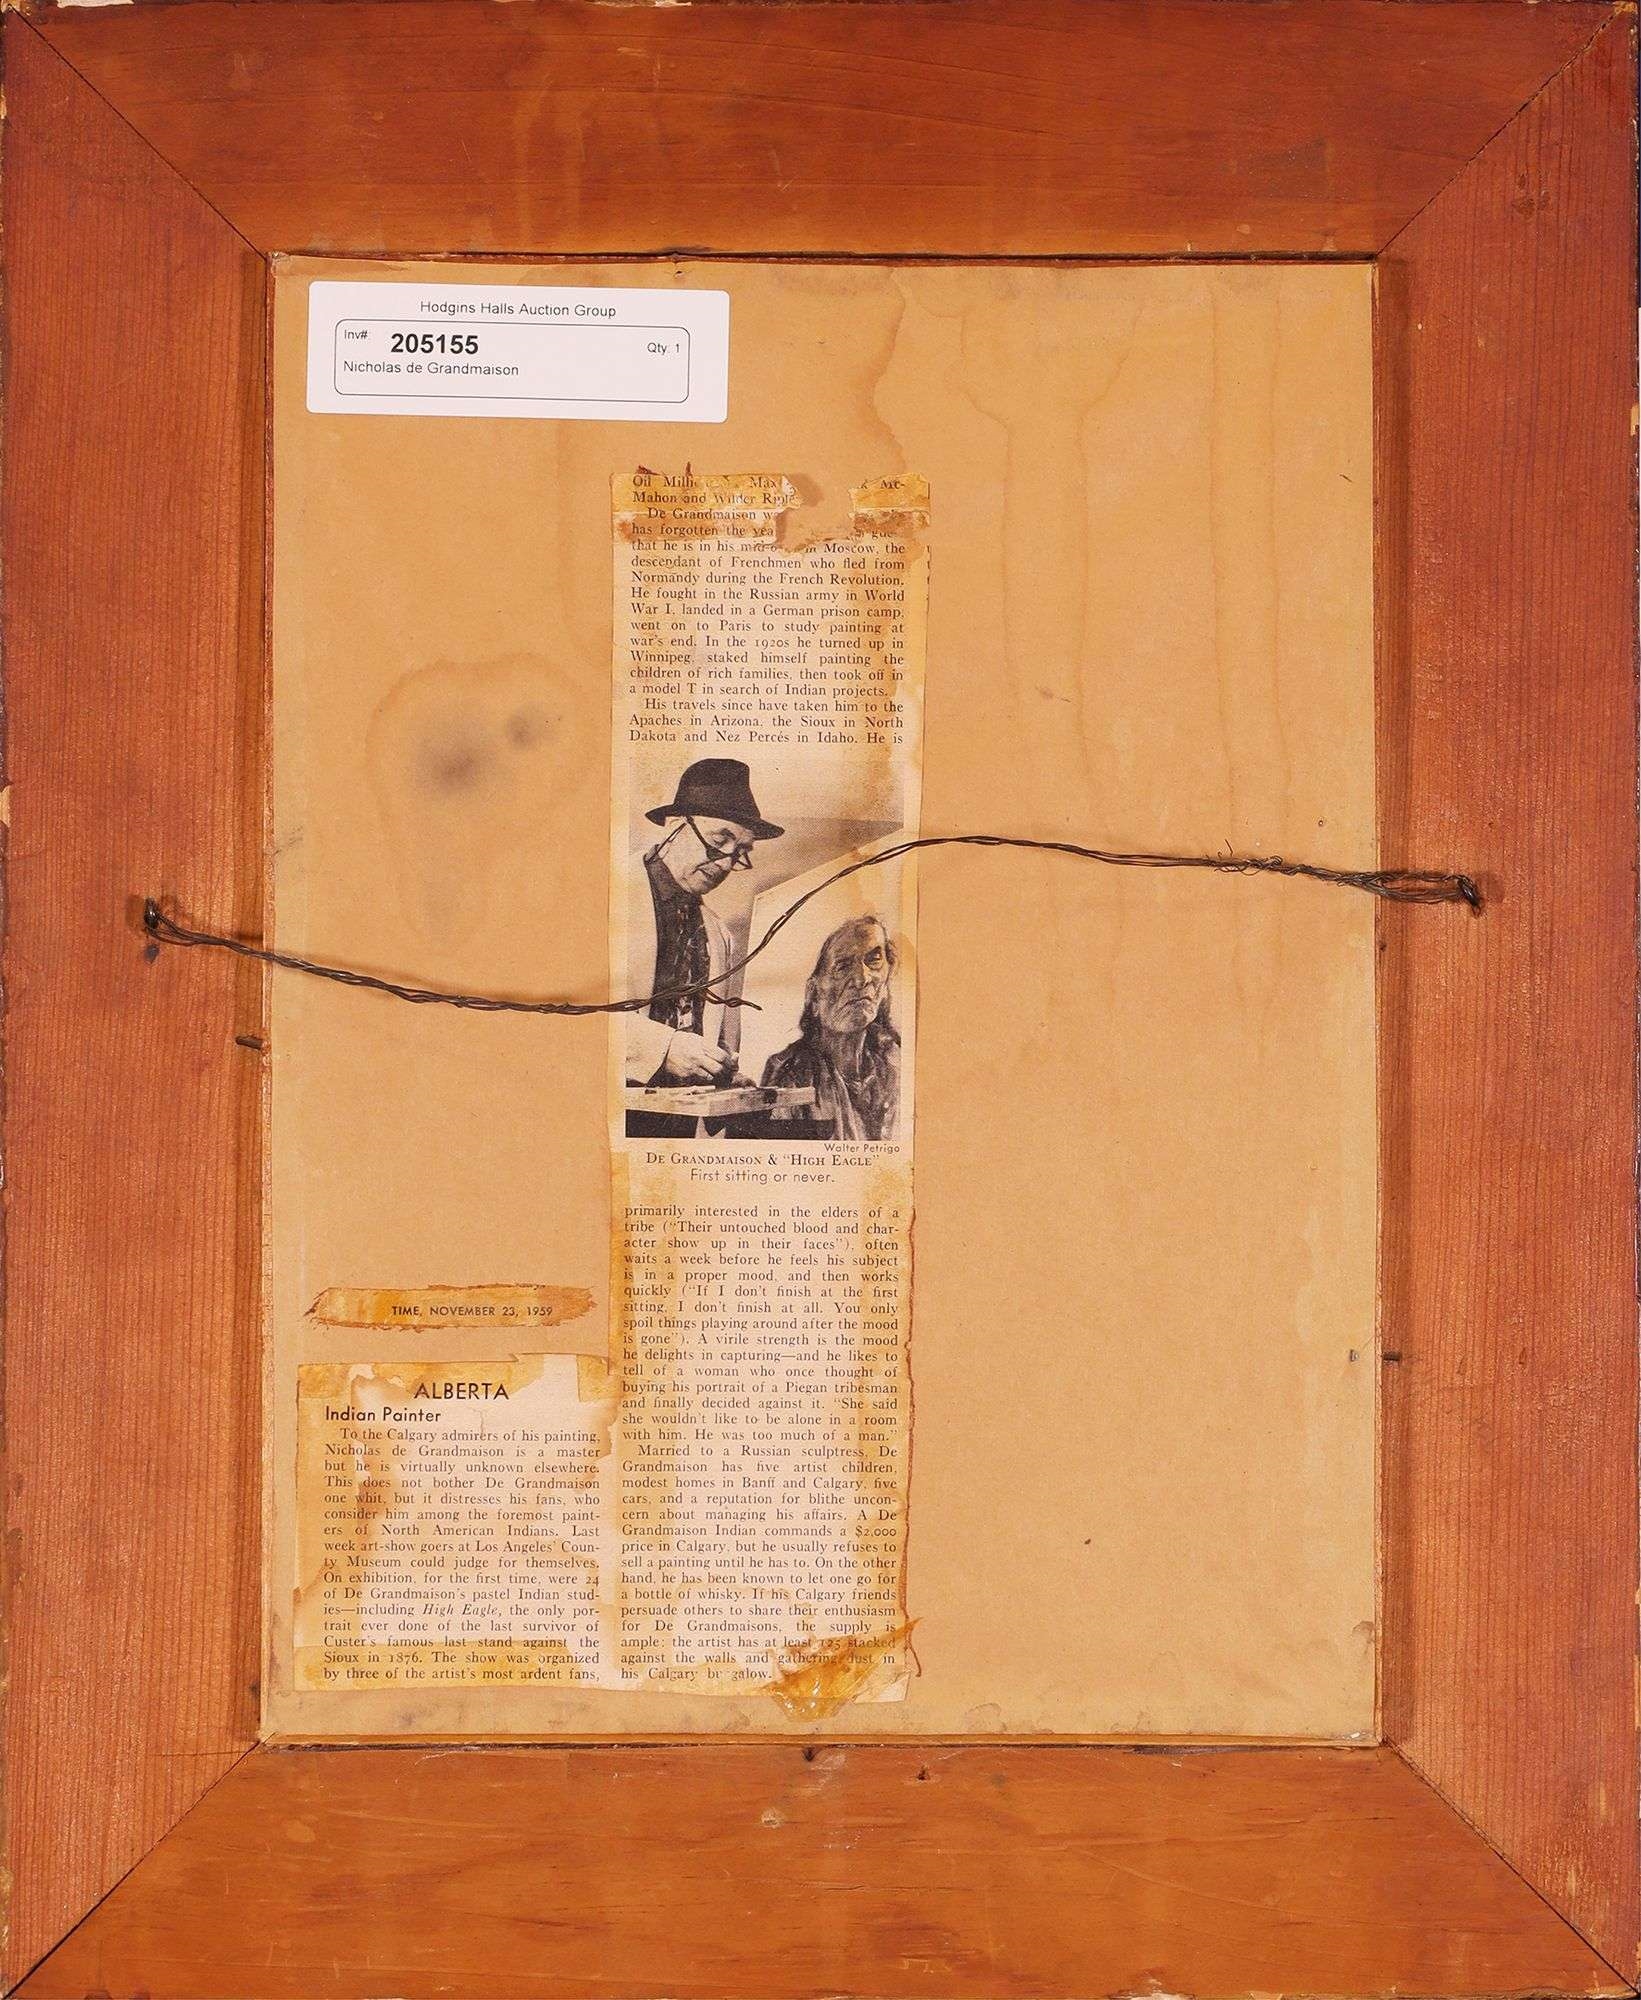 Hodgins Halls Auction Group
Inv#: 205155 Qty: 1
Nicholas de Grandmaison
TIME, NOVEMBER 23, 1959
ALBERTA
Indian Painter
To the Calgary admirers of his painting,
Nicholas de Grandmaison is a master
but he is virtually unknown elsewhere.
This does not bother De Grandmaison
one whit, but it distresses his fans, who
consider him among the foremost paint-
ers of North American Indians. Last
week art-show goers at Los Angeles' Coun-
ty Museum could judge for themselves.
On exhibition, for the first time, were 24
of De Grandmaison's pastel Indian stud-
ies—including High Eagle, the only por-
trait ever done of the last survivor of
Custer's famous last stand against the
Sioux in 1876. The show was organized
by three of the artist's most ardent fans,
Oil Max Mc-
Mahon and Wilder
De Grandmaison
has forgotten the
that he is in his Moscow, the
descendant of Frenchmen who fled from
Normandy during the French Revolution.
He fought in the Russian army in World
War I, landed in a German prison camp,
went on to Paris to study painting at
war's end. In the 1920s he turned up in
Winnipeg, staked himself painting the
children of rich families, then took off in
a model T in search of Indian projects.
His travels since have taken him to the
Apaches in Arizona, the Sioux in North
Dakota and Nez Percés in Idaho. He is
Walter Petrigo
DE GRANDMAISON & "HIGH EAGLE"
First sitting or never.
primarily interested in the elders of a
tribe ("Their untouched blood and char-
acter show up in their faces"), often
waits a week before he feels his subject
is in a proper mood, and then works
quickly ("If I don't finish at the first
sitting, I don't finish at all. You only
spoil things playing around after the mood
is gone"). A virile strength is the mood
he delights in capturing—and he likes to
tell of a woman who once thought of
buying his portrait of a Piegan tribesman
and finally decided against it. "She said
she wouldn't like to be alone in a room
with him. He was too much of a man."
Married to a Russian sculptress, De
Grandmaison has five artist children,
modest homes in Banff and Calgary, five
cars, and a reputation for blithe uncon-
cern about managing his affairs. A De
Grandmaison Indian commands a $2,000
price in Calgary, but he usually refuses to
sell a painting until he has to. On the other
hand, he has been known to let one go for
a bottle of whisky. If his Calgary friends
persuade others to share their enthusiasm
for De Grandmaisons, the supply is
ample; the artist has at least 125 stacked
against the walls and gathering dust in
his Calgary bungalow.